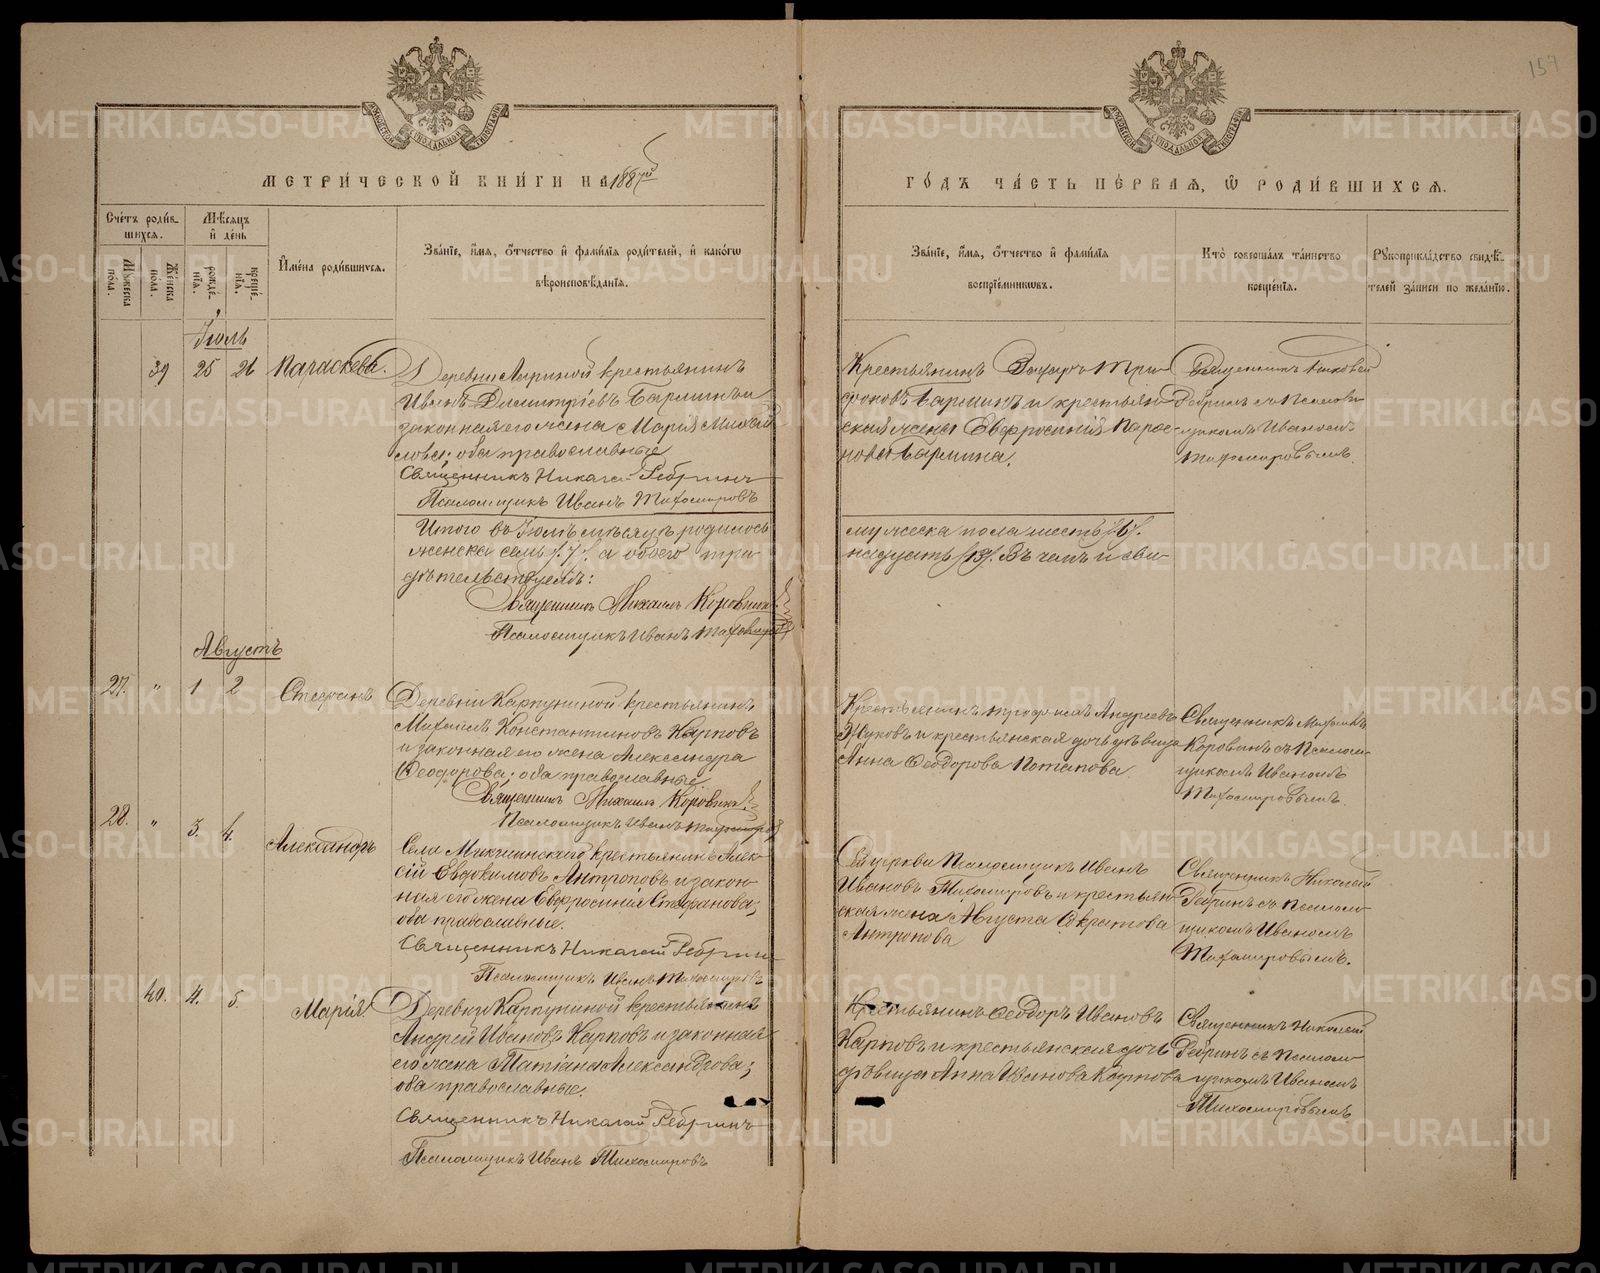 157
МЕТРИ́ЧЕСКОЙ КНИ́ГИ НА 1887й
ГО́ДЪ ЧА́СТЬ ПЕ́РВАЯ, Ѽ РОДИ́ВШИХСЯ.
Счетъ роди́в-
шихся.
Мужеска пола.
Женска пола.
Мѣсяцъ
и день
рожде́-
нїя.
креще́-
нїя.
И́мена роди́вшихся.
Зва́нїе, и́мя, ѻ҆́тчество и҆ фами́лїя роди́телей, и҆ како́гѡ
вѣроисповѣ́данїя.
Зва́нїе, и́мя, ѻ҆́тчество и҆ фами́лїя
воспрїе́мникѡвъ.
Кто̀ соверша́лъ та́инство
креще́нїя.
Рукоприкла́дство свидѣ́-
телей за́писи по жела́нїю.
Іюль
39 25 26 Параскева.
Деревни Лариной крестьянинъ
Иванъ Димитріевъ Барминъ и
законная его жена Марія Михай
лова; оба православные
Священникъ Николай Ребринъ
Псаломщикъ Иванъ Тихомировъ
Крестьянинъ Захаръ Три
фоновъ Барминъ и крестьян
ская жена Евфросинія
Бармина.
Священникъ Николай
Ребринъ съ Псалом
щикомъ Иваномъ
Тихомировымъ.
Итого въ Іюлѣ мѣсяцѣ родилось
женска семь /7/. а обоего три-
дѣтельствуемъ:
мужеска пола шесть /6/.
надцать /13/. Въ чемъ и сви-
Священникъ Михаилъ Коровинъ
Псаломщикъ Иванъ Тихомировъ
Августъ
27. " 1 2 Стефанъ
Деревни Карпушиной крестьянинъ
Михаилъ Константиновъ Карповъ
и законная его жена Александра
Ѳеодорова; оба православные
Священникъ Михаилъ Коровинъ
Псаломщикъ Иванъ Тихомировъ
Крестьянинъ Трофимъ Андреевъ
Жуковъ и крестьянская дочь дѣвица
Анна Ѳеодорова Потапова
Священникъ Михаилъ
Коровинъ съ Псалом-
щикомъ Иваномъ
Тихомировымъ.
28. " 3. 4. Александръ
Села Микшинскаго крестьянинъ Алек-
сій Евдокимовъ Антроповъ и закон-
ная его жена Евфросинія Стефанова;
оба православные.
Священникъ Николай Ребринъ
Псаломщикъ Иванъ Тихомировъ
Сей церкви Псаломщикъ Иванъ
Ивановъ Тихомировъ и крестьян
ская жена Августа Сократова
Антропова
Священникъ Николай
Ребринъ съ Псалом-
щикомъ Иваномъ
Тихомировымъ.
40. 4. 5. Марія
Деревни Карпушиной крестьянинъ
Андрей Ивановъ Карповъ и законная
его жена Татіана Александрова;
оба православные.
Священникъ Николай Ребринъ
Псаломщикъ Иванъ Тихомировъ
Крестьянинъ Ѳеодоръ Ивановъ
Карповъ и крестьянская дочь
дѣвица Анна Иванова Карпова
Священникъ Николай
Ребринъ съ Псалом-
щикомъ Иваномъ
Тихомировымъ.
METRIKI.GASO-URAL.RU